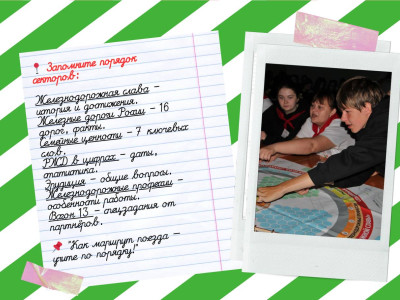 📍 Запомните порядок
секторов:
Железнодорожная слава –
история и достижения.
Железные дороги России – 16
дорог, факты.
Семейные ценности – 7 ключевых
слов.
РЖД в цифрах – даты,
статистика.
Эрудиция – общие вопросы.
Железнодорожные профессии –
особенности работы.
Вагон 13 – спецзадания от
партнёров.
📌 "Как маршрут поезда –
учите по порядку!"